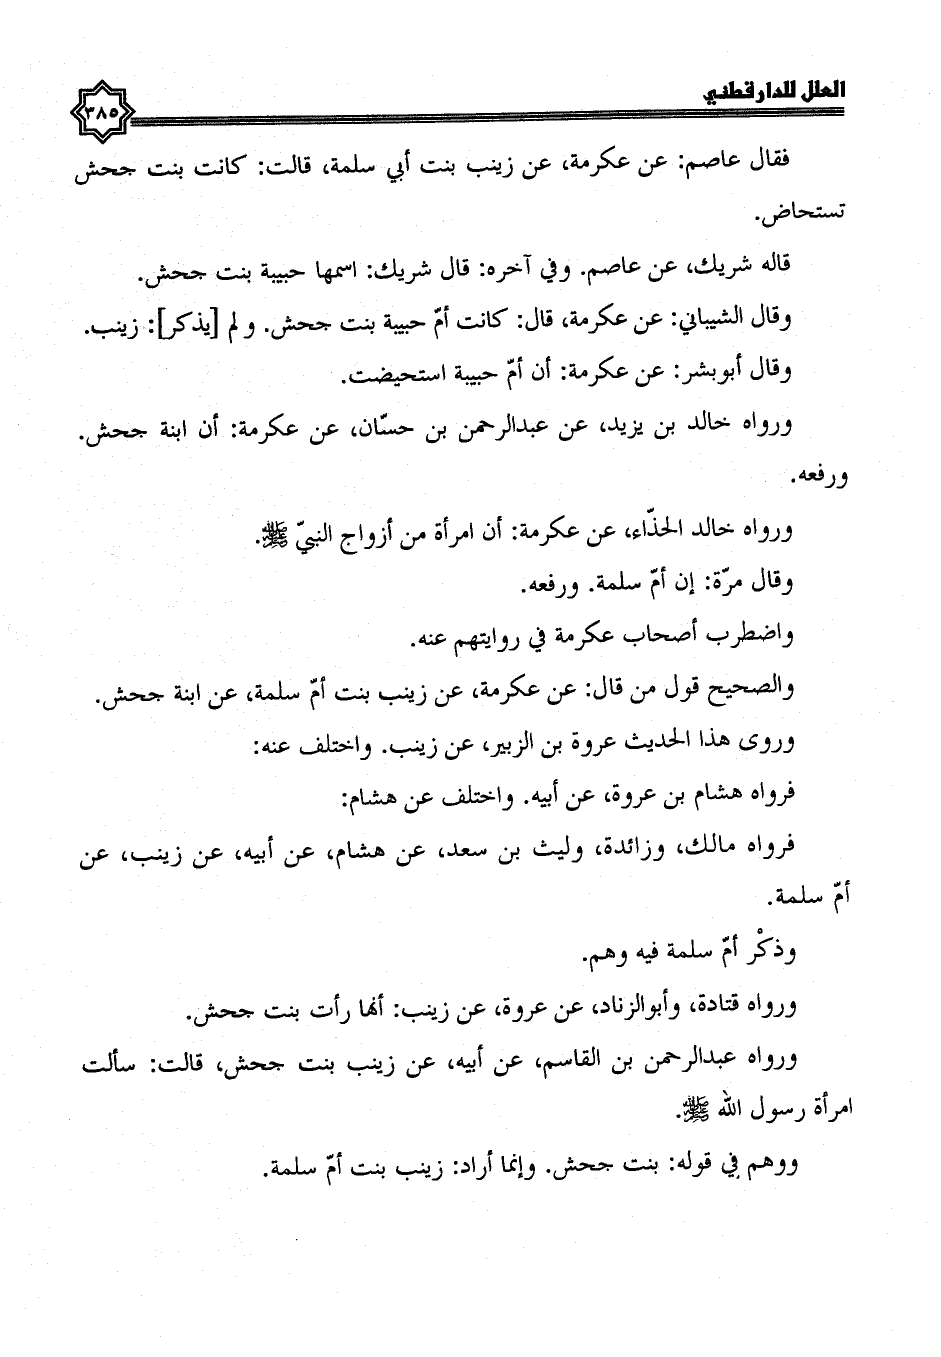 العلل للدارقطني
٣٨٥
فقال عاصم: عن عكرمة، عن زينب بنت أبي سلمة، قالت: كانت بنت جحش
تستحاض.
قاله شريك، عن عاصم. وفي آخره: قال شريك: اسمها حبيبة بنت جحش.
وقال الشيباني: عن عكرمة، قال: كانت أمّ حبيبة بنت جحش. و لم [يذكر]: زينب.
وقال أبوبشر: عن عكرمة: أن أمّ حبيبة استحيضت.
ورواه خالد بن يزيد، عن عبدالرحمن بن حسّان، عن عكرمة: أن ابنة جحش.
ورفعه.
ورواه خالد الحذّاء، عن عكرمة: أن امرأة من أزواج النبيّ ﷺ.
وقال مرّة: إن أمّ سلمة. ورفعه.
واضطرب أصحاب عكرمة في روايتهم عنه.
والصحيح قول من قال: عن عكرمة، عن زينب بنت أمّ سلمة، عن ابنة جحش.
وروى هذا الحديث عروة بن الزبير، عن زينب. واختلف عنه:
فرواه هشام بن عروة، عن أبيه. واختلف عن هشام:
فرواه مالك، وزائدة، وليث بن سعد، عن هشام، عن أبيه، عن زينب، عن
أمّ سلمة.
وذكْر أمّ سلمة فيه وهم.
ورواه قتادة، وأبوالزناد، عن عروة، عن زينب: أنها رأت بنت جحش.
ورواه عبدالرحمن بن القاسم، عن أبيه، عن زينب بنت جحش، قالت: سألت
امرأة رسول الله ﷺ.
ووهم في قوله: بنت جحش. وإنما أراد: زينب بنت أمّ سلمة.